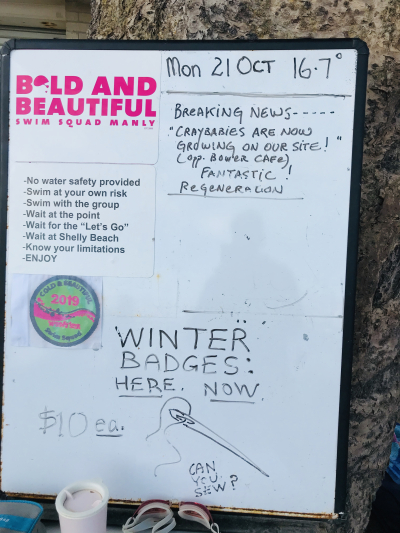 Mon 21 Oct 16.7°
BOLD AND
BEAUTIFUL
SWIM SQUAD MANLY
BREAKING NEWS-----
"CRAYBABIES ARE NOW
GROWING ON OUR SITE!"
(opp. BOWER CAFE)
FANTASTIC!
REGENERATION
-No water safety provided
-Swim at your own risk
-Swim with the group
-Wait at the point
-Wait for the "Let's Go"
-Wait at Shelly Beach
-Know your limitations
-ENJOY
BOLD & BEAUTIFUL
2019
Swim Squad
WINTER
BADGES:
HERE. NOW.
$10 ea.
CAN
YOU
SEW?